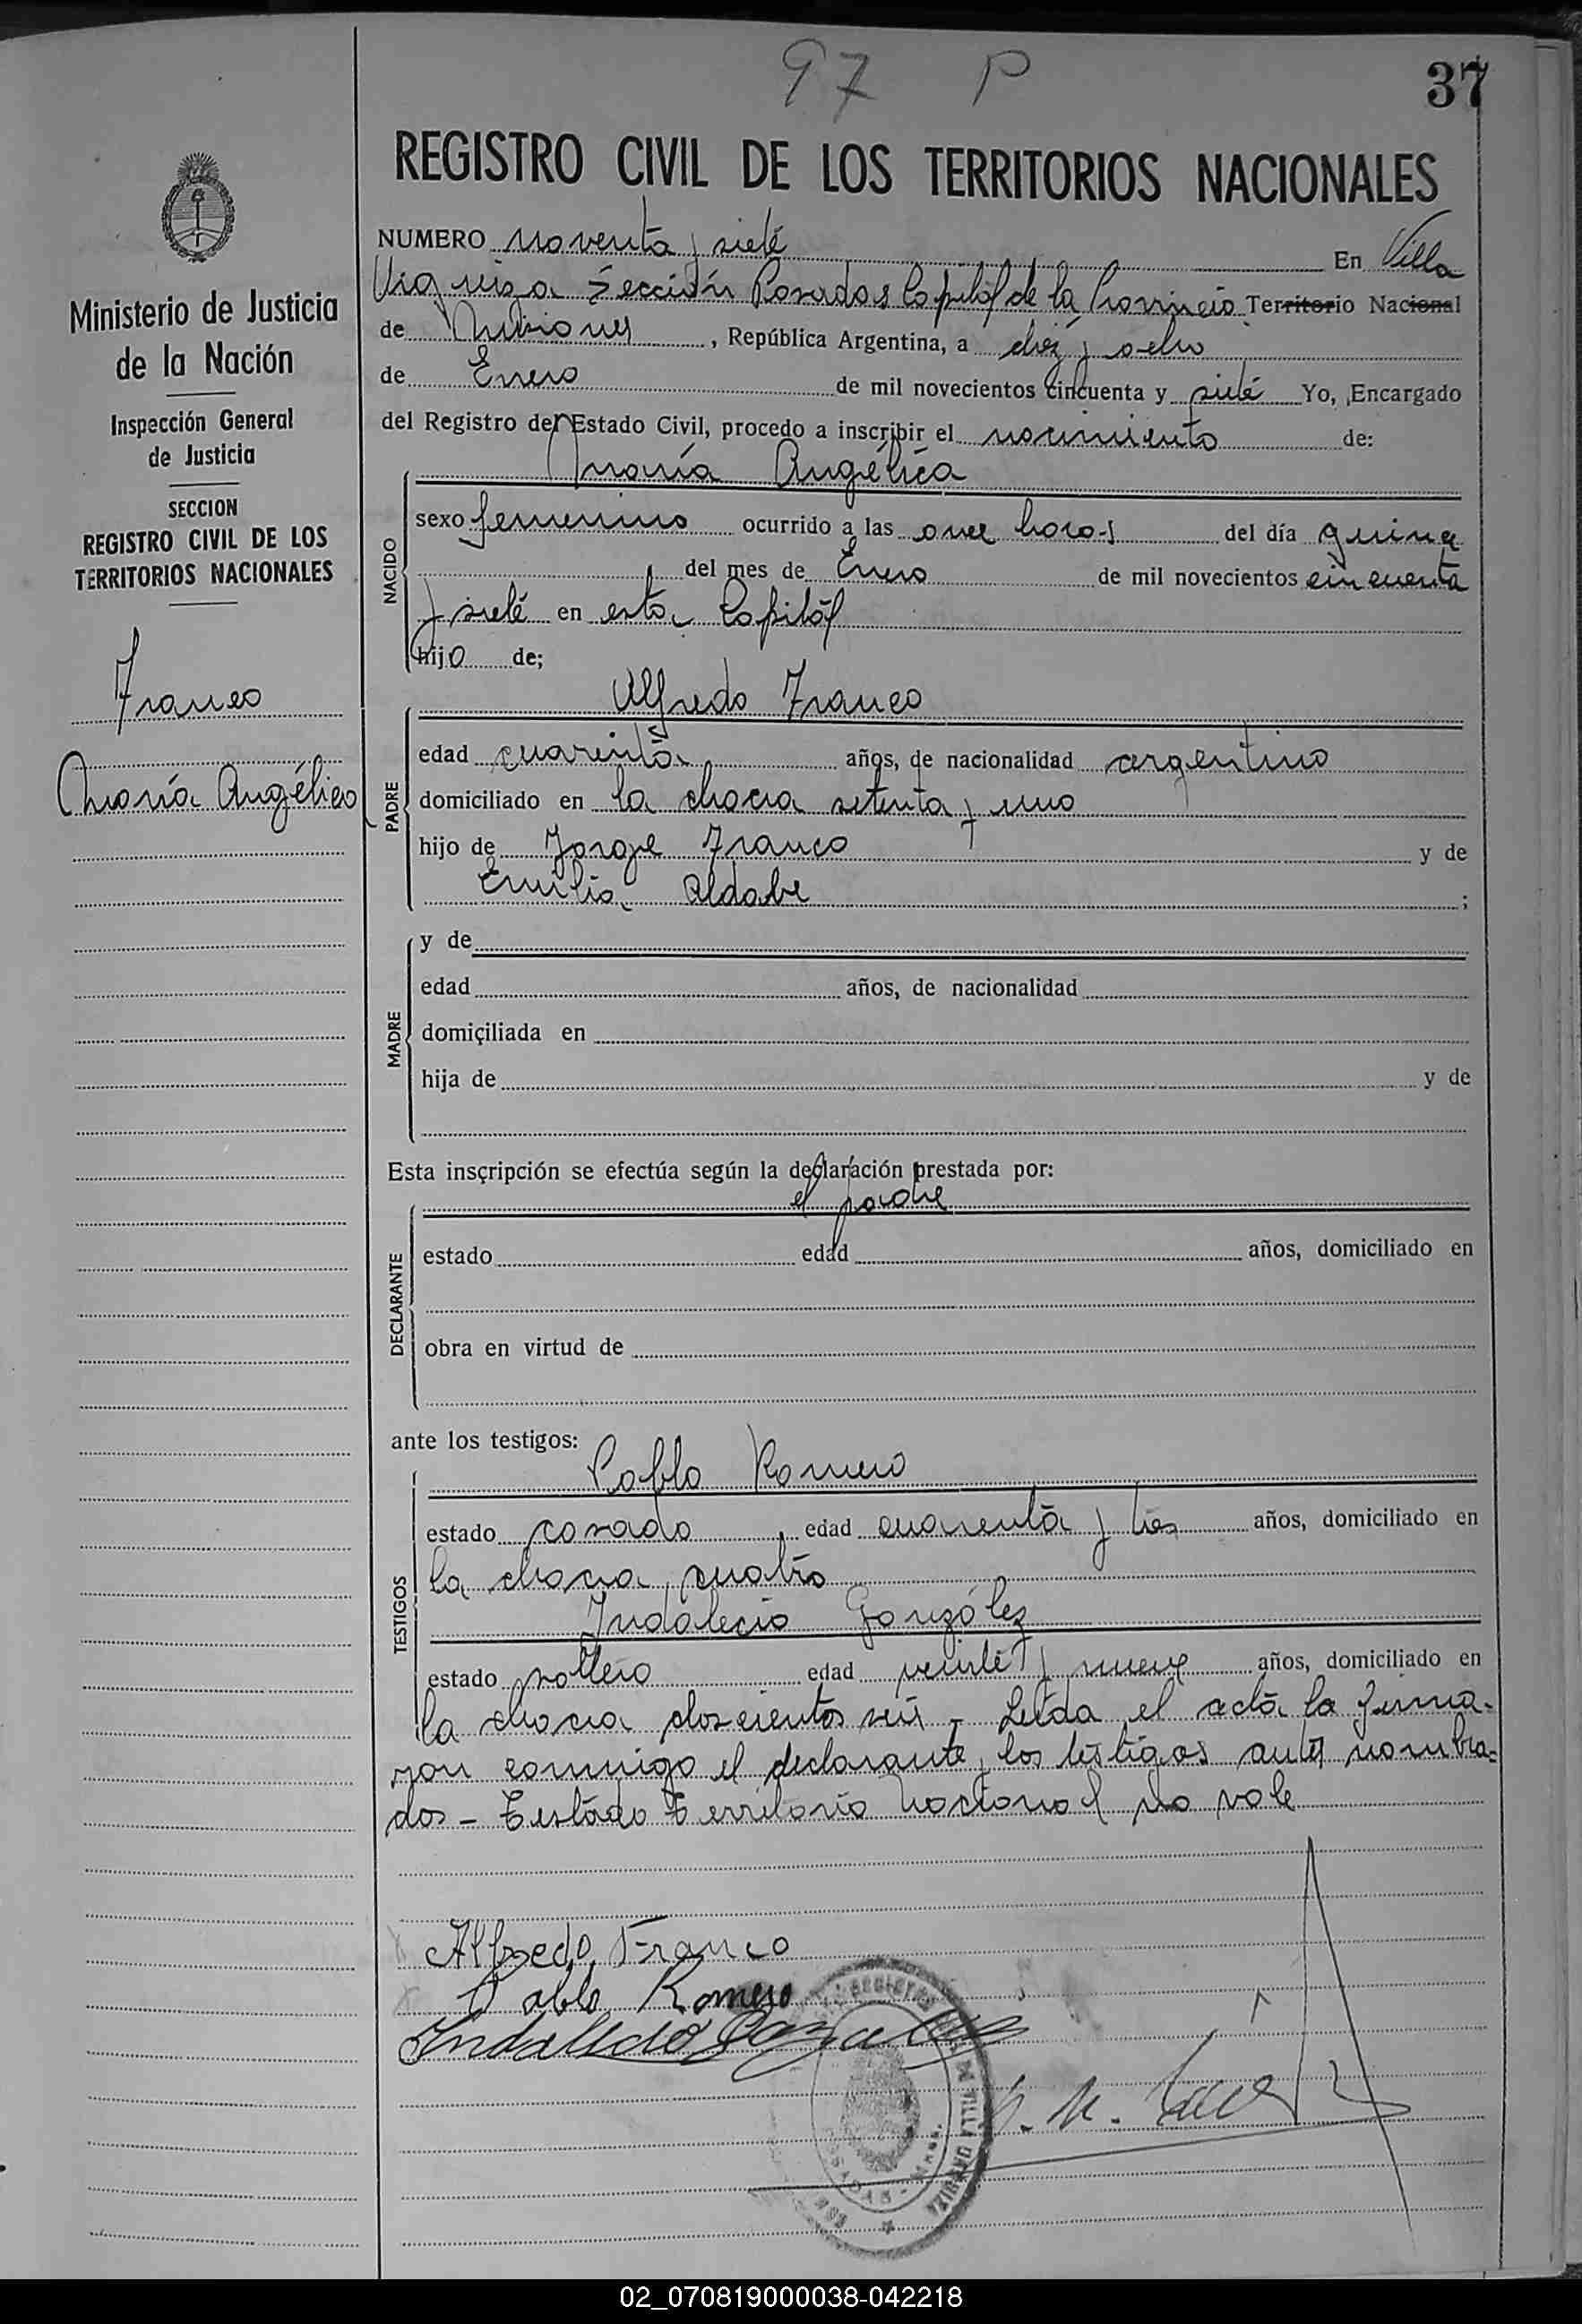 97 P
37
REGISTRO CIVIL DE LOS TERRITORIOS NACIONALES
Ministerio de Justicia
de la Nación
Inspección General
de Justicia
SECCION
REGISTRO CIVIL DE LOS
TERRITORIOS NACIONALES
Franco
María Angélica
NUMERO noventa y siete En Villa
Urquiza Sección Posadas Capital de la Provincia Territorio Nacional
de Misiones, República Argentina, a diez y ocho
de Enero de mil novecientos cincuenta y siete Yo, Encargado
del Registro del Estado Civil, procedo a inscribir el nacimiento de:
María Angélica
NACIDO
sexo femenino ocurrido a las once horas del día quince
del mes de Enero de mil novecientos cincuenta
y siete en esta Capital
hijo de;
Alfredo Franco
PADRE
edad cuarenta años, de nacionalidad argentino
domiciliado en la chacra setenta y uno
hijo de Jorge Franco y de
Emilia Aldabe ;
MADRE
y de
edad años, de nacionalidad
domiciliada en
hija de y de
Esta inscripción se efectúa según la declaración prestada por:
el padre
DECLARANTE
estado edad años, domiciliado en
obra en virtud de
ante los testigos:
Pablo Romero
TESTIGOS
estado casado, edad cuarenta y tres años, domiciliado en
la chacra cuatro
Indalecio González
estado soltero edad veinte y nueve años, domiciliado en
la chacra doscientos seis - Leída el acta la firma-
ron conmigo el declarante y los testigos antes nombra=
dos - Testado Territorio Nacional no vale
Alfredo Franco
Pablo Romero
Indalecio Gonzalez
02_070819000038-042218